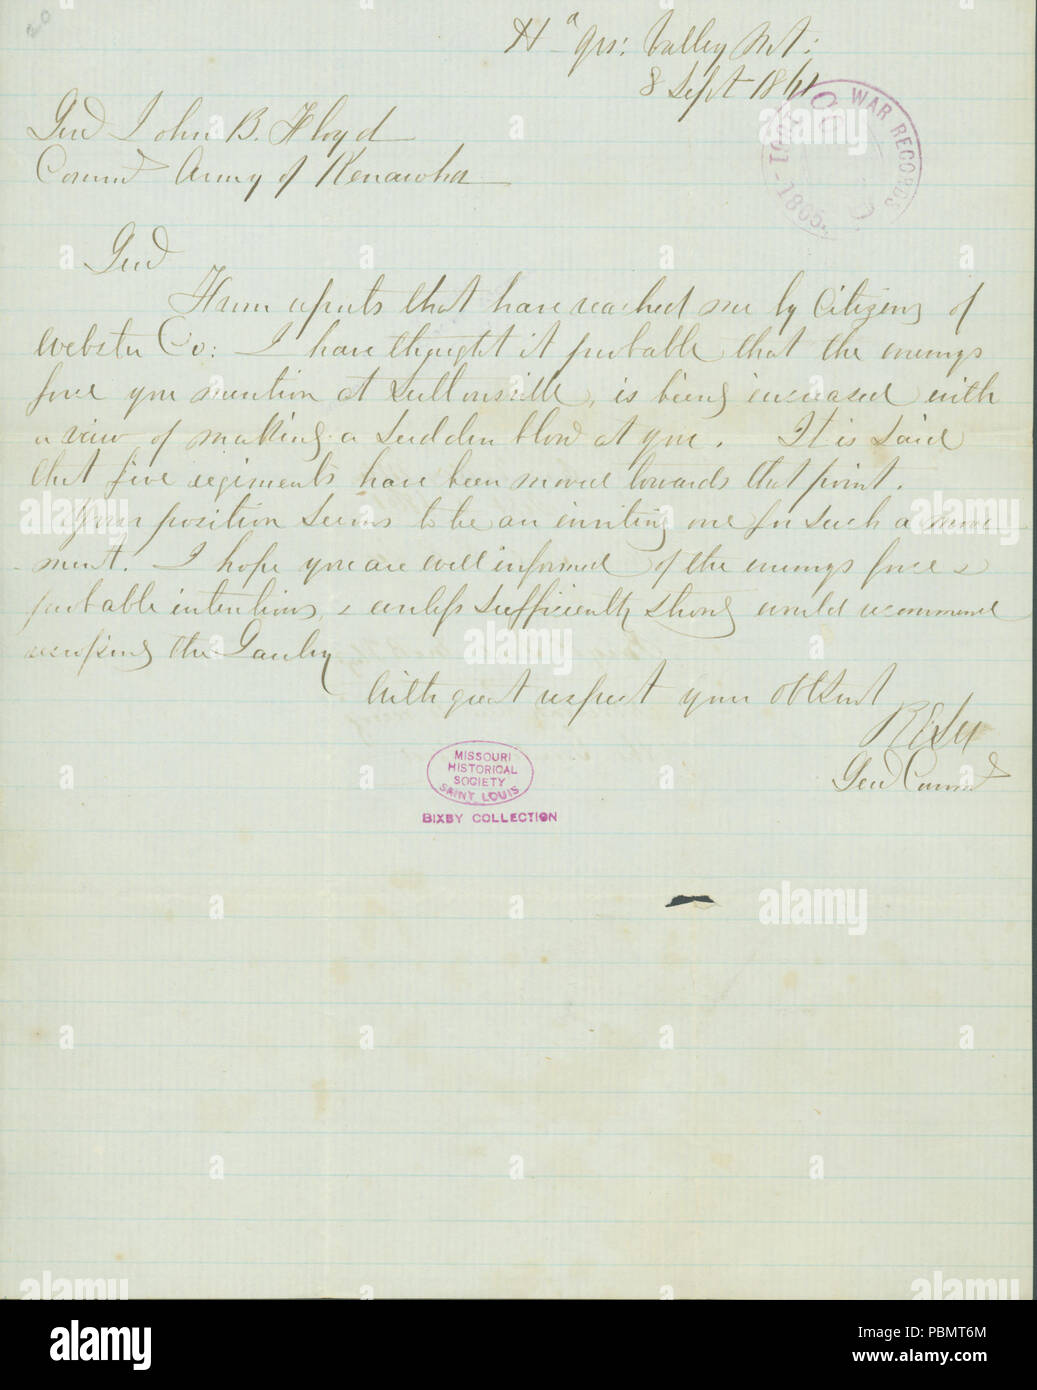 Hd Qrs: Valley Mt:
8 Sept 1861
Genl John B. Floyd
Commd Army of Kenawha
WAR RECORDS
1861-1865.
Genl
From reports that have reached me by Citizens of
Webster Co: I have thought it probable that the enemys
force you mention at Suttonsville, is being increased with
a view of making a sudden blow at you. It is said
that five regiments have been moved towards that point.
Your position seems to be an inviting one for such a move
ment. I hope you are well informed of the enemys force &
probable intentions, & unless sufficiently strong would recommend
recrossing the Gauley
With great respect your obt Servt
R E Lee
Genl Commd
MISSOURI
HISTORICAL
SOCIETY
SAINT LOUIS
BIXBY COLLECTION
alamy
Image ID: PBMT6M
www.alamy.com